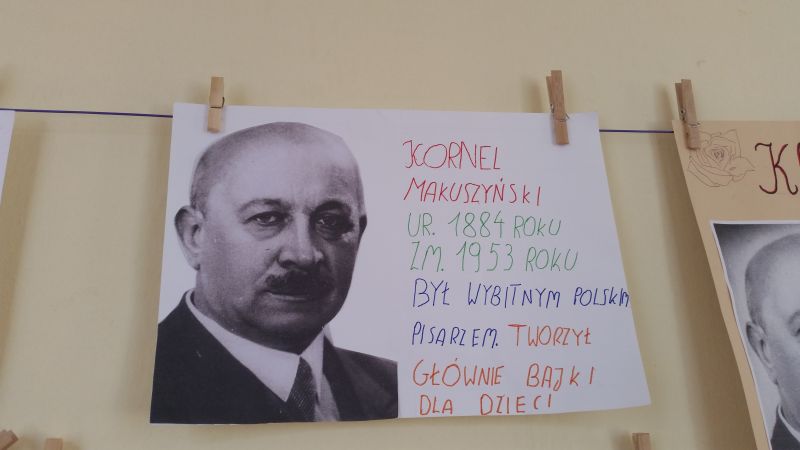 KORNEL
MAKUSZYŃSKI
UR. 1884 ROKU
ZM. 1953 ROKU
BYŁ WYBITNYM POLSKIM
PISARZEM. TWORZYŁ
GŁÓWNIE BAJKI
DLA DZIECI
K